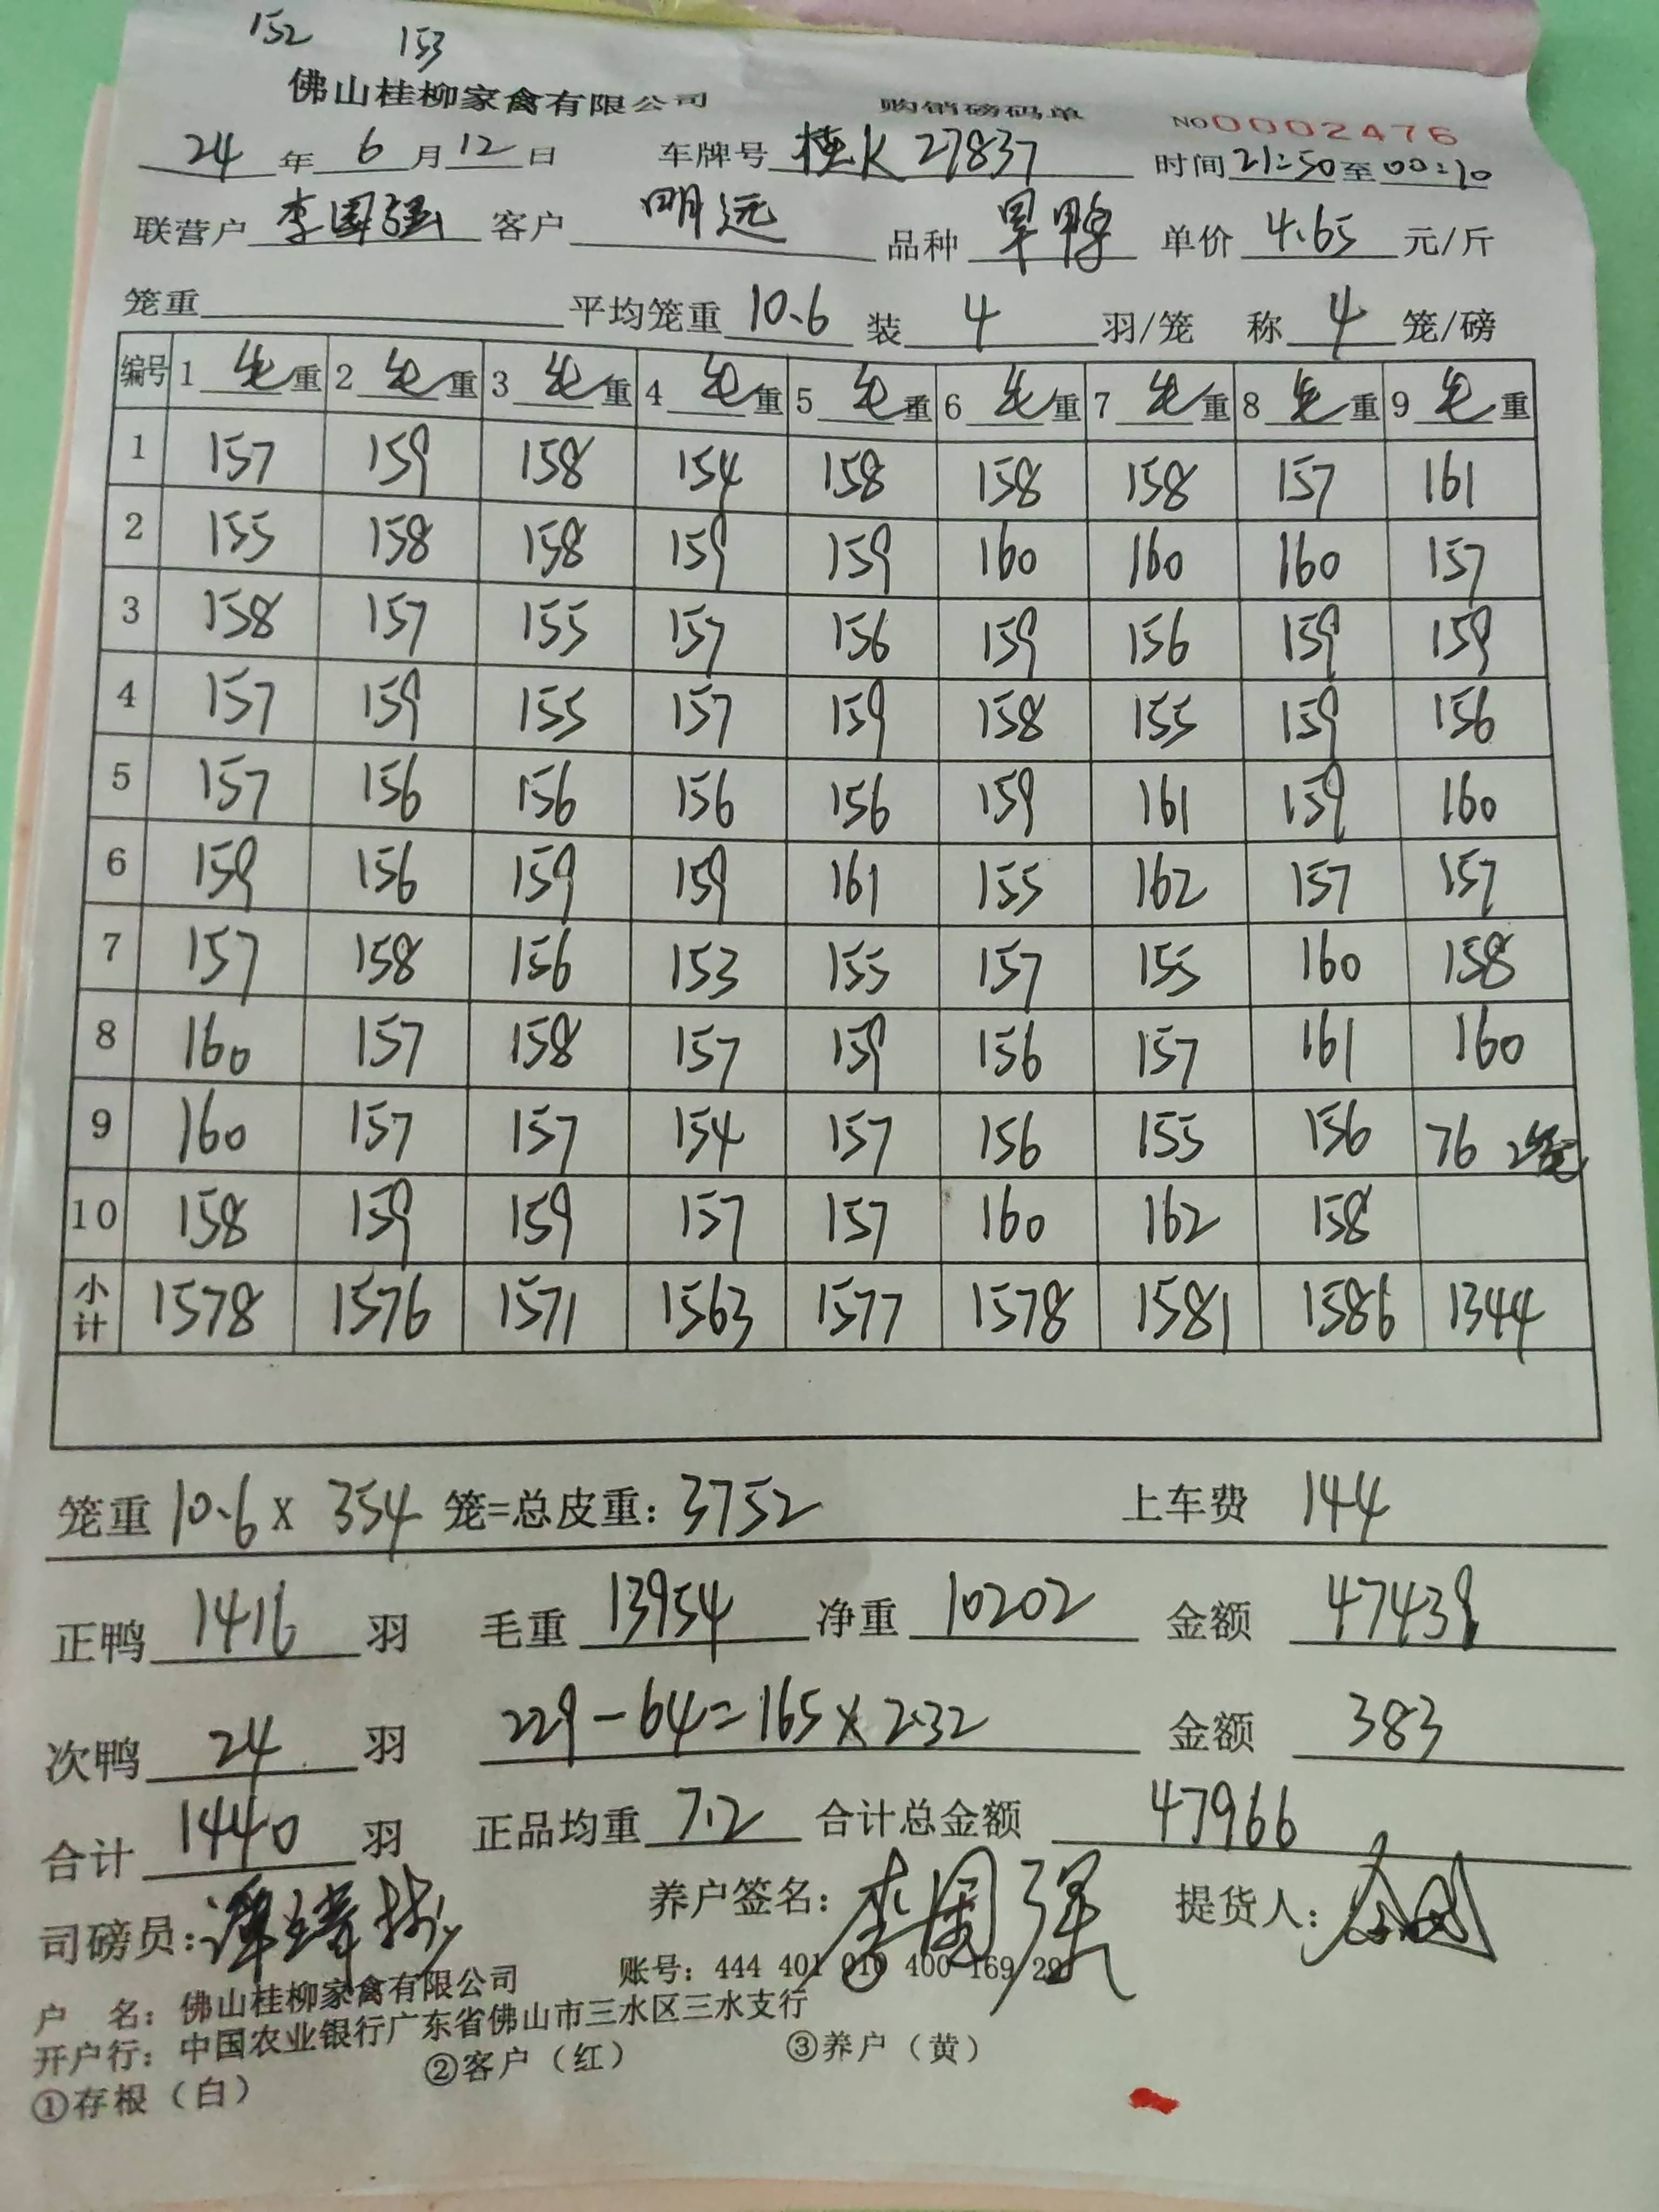 152 153
佛山桂柳家禽有限公司 购销磅码单 NO0002476
24年6月12日 车牌号 桂K27837 时间21:50至00:10
联营户 李国强 客户 明远 品种 旱鸭 单价 4.65 元/斤
笼重 平均笼重 10.6 装 4 羽/笼 称 4 笼/磅
编号 1 毛重 2 毛重 3 毛重 4 毛重 5 毛重 6 毛重 7 毛重 8 毛重 9 毛重
1 157 159 158 154 158 158 158 157 161
2 155 158 158 159 159 160 160 160 157
3 158 157 155 157 156 159 156 159 159
4 157 159 155 157 159 158 155 159 156
5 157 156 156 156 156 159 161 159 160
6 159 156 159 159 161 155 162 157 157
7 157 158 156 153 155 157 155 160 158
8 160 157 158 157 159 156 157 161 160
9 160 157 157 154 157 156 155 156 76 2笼
10 158 159 159 157 157 160 162 158
小计 1578 1576 1571 1563 1577 1578 1581 1586 1344
笼重 10.6 x 354 笼=总皮重: 3752 上车费 144
正鸭 1416 羽 毛重 13954 净重 10202 金额 47439
次鸭 24 羽 229-64=165x2.32 金额 383
合计 1440 羽 正品均重 7.2 合计总金额 47966
司磅员: 养户签名: 李国强 提货人:
户 名: 佛山桂柳家禽有限公司 账号: 444 401 010 400 169 29
开户行: 中国农业银行广东省佛山市三水区三水支行
①存根（白） ②客户（红） ③养户（黄）